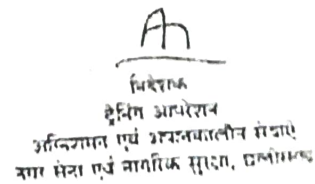 निदेशक
ट्रेनिंग आपरेशन
अग्निशमन एवं आपातकालीन सेवाऐं
नगर सेना एवं नागरिक सुरक्षा, छत्तीसगढ़